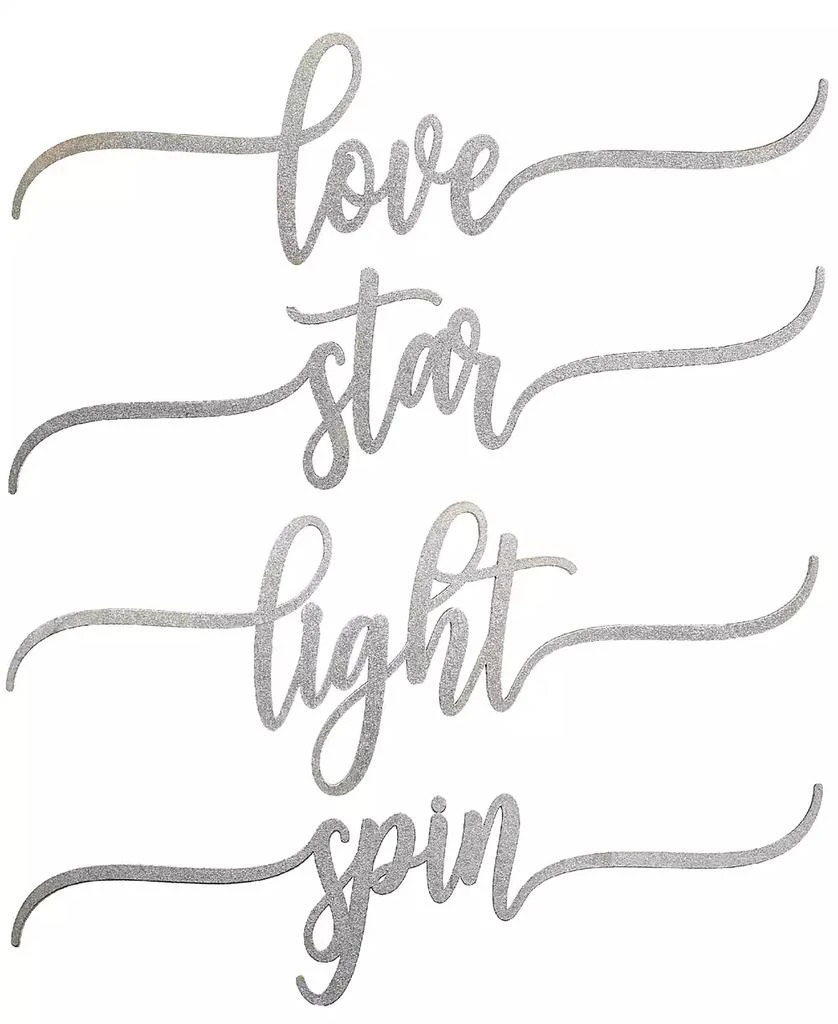 love
star
light
spin